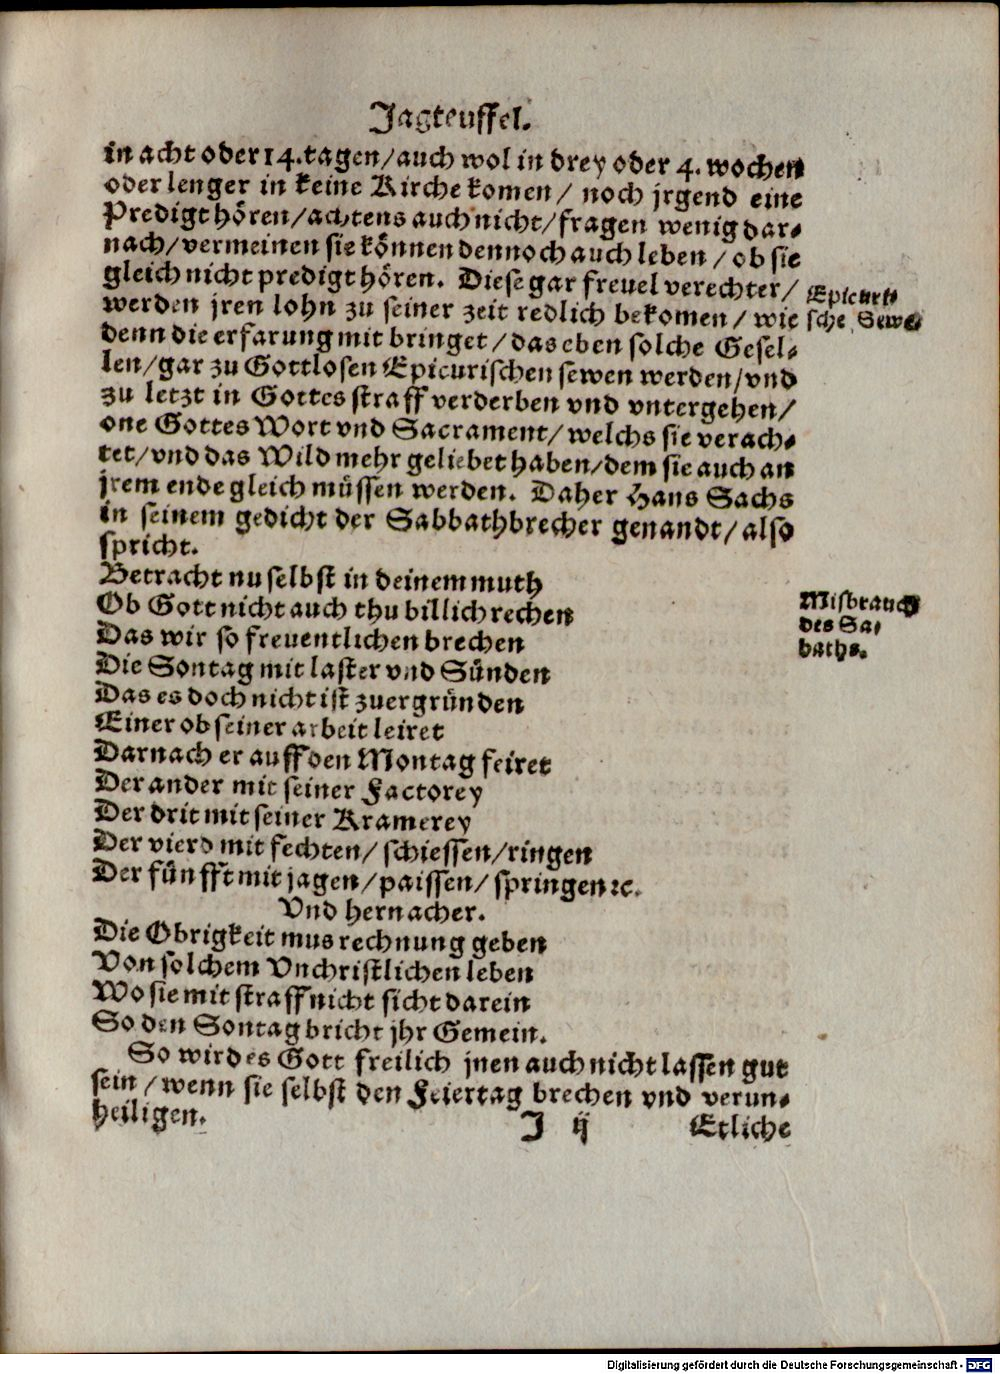 Jagteuffel.
in acht oder 14. tagen/auch wol in drey oder 4. wochen
oder lenger in keine Kirche komen/ noch jrgend eine
Predigt hören/achtens auch nicht/fragen wenig dar-
nach/vermeinen sie können dennoch auch leben/ob sie
gleich nicht predigt hören. Diese gar freuel verechter/
werden jren lohn zu seiner zeit redlich bekomen/wie
denn die erfarung mit bringet/das eben solche Gesel-
len/gar zu Gottlosen Epicurischen sewen werden/vnd
zu letzt in Gottes straff verderben vnd vntergehen/
one Gottes Wort vnd Sacrament/welchs sie verach-
tet/vnd das Wild mehr geliebet haben/dem sie auch an
jrem ende gleich müssen werden. Daher Hans Sachs
in seinem gedicht der Sabbathbrecher genandt/also
spricht.
Epicuri-
sche Sewe
Betracht nu selbst in deinem muth
Ob Gott nicht auch thu billich rechen
Das wir so freuentlichen brechen
Die Sontag mit laster vnd Sünden
Das es doch nicht ist zuergründen
Einer ob seiner arbeit leiret
Darnach er auff den Montag feiret
Der ander mit seiner Factorey
Der drit mit seiner Kramerey
Der vierd mit fechten/ schiessen/ringen
Der fünfft mit jagen/paissen/springen ꝛc.
Misbrauch
des Sa-
baths.
Vnd hernacher.
Die Obrigkeit mus rechnung geben
Von solchem Vnchristlichen leben
Wo sie mit straff nicht sicht darein
So den Sontag bricht jhr Gemein.
So wird es Gott freilich jnen auch nicht lassen gut
sein/wenn sie selbst den Feiertag brechen vnd verun-
heiligen.
J ij
Etliche
Digitalisierung gefördert durch die Deutsche Forschungsgemeinschaft - DFG